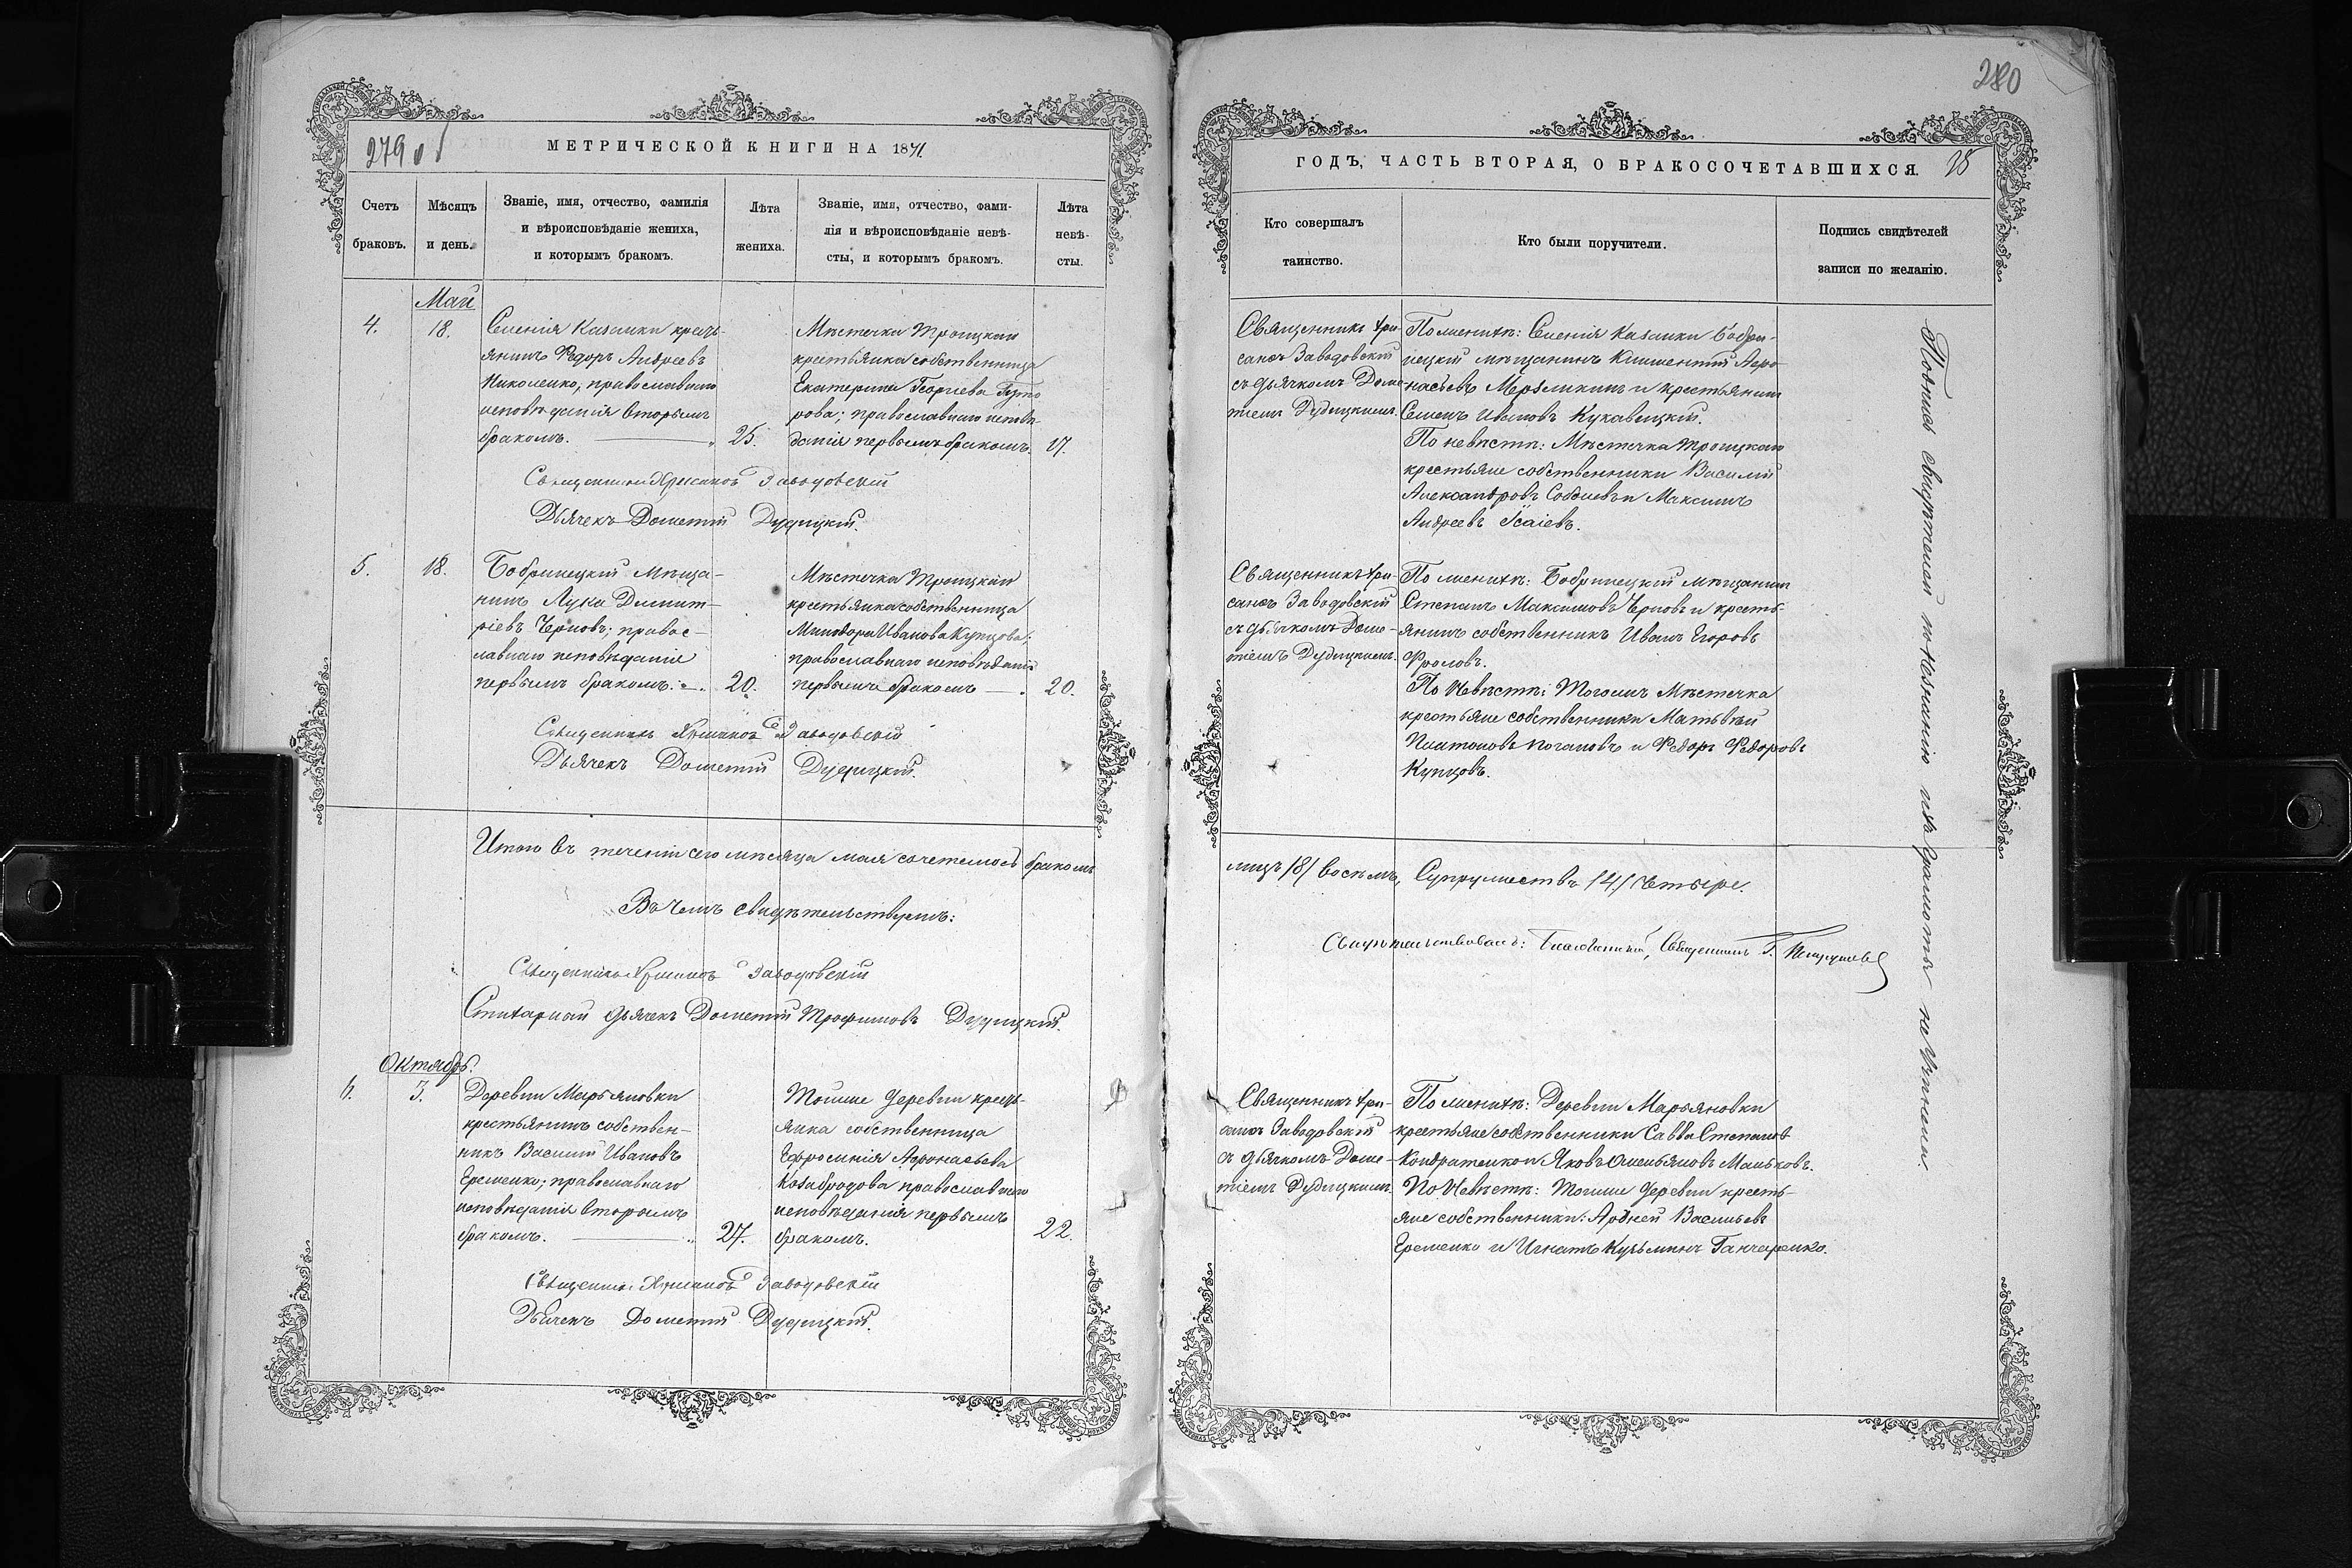 279 об
МЕТРИЧЕСКОЙ КНИГИ НА 1871.
Счетъ браковъ.
Мѣсяцъ и день.
Званіе, имя, отчество, фамилія
и вѣроисповѣданіе жениха,
и которымъ бракомъ.
Лѣта
жениха.
Званіе, имя, отчество, фами-
лія и вѣроисповѣданіе невѣ-
сты, и которымъ бракомъ.
Лѣта
невѣ-
сты.
Май
4.
18.
Селенія Казанки кресть-
янинъ Ѳедоръ Андреевъ
Николенко, православнаго
исповѣданія вторымъ
бракомъ.
25.
Мѣстечка Троицкаго
крестьянка собственница
Екатерина Георгіева
рова; православнаго исповѣ-
данія первымъ бракомъ.
17.
Священникъ Хрисанѳъ Заводовскій
Дьячекъ Дометій Дудицкій.
5.
18.
Бобринецкій Мѣща-
нинъ Лука Димит-
ріевъ Черновъ; правос-
лавнаго исповѣданія
первымъ бракомъ.
20.
Мѣстечка Троицкаго
крестьянка собственница
Минодора Иванова Купцова;
православнаго исповѣданія
первымъ бракомъ
20.
Священникъ Хрисанѳъ Заводовскій
Дьячекъ Дометій Дудицкій.
Итого въ теченіи сего мѣсяца мая сочеталось бракомъ
Въ чемъ свидѣтельствуемъ:
Священникъ Хрисанѳъ Заводовскій
Стихарный дьячекъ Дометій Трофимовъ Дудицкій.
Октябрь.
6.
3.
Деревни Марьяновки
крестьянинъ собствен-
никъ Василій Ивановъ
Еременко; православнаго
исповѣданія вторымъ
бракомъ.
27.
Тойже деревни кресть-
янка собственница
Ефросинія Аѳонасьева
Козабродова православнаго
исповѣданія первымъ
бракомъ.
22.
Священникъ Хрисанѳъ Заводовскій
Дьячекъ Дометій Дудицкій.
280
ГОДЪ, ЧАСТЬ ВТОРАЯ, О БРАКОСОЧЕТАВШИХСЯ.
28
Кто совершалъ
таинство.
Кто были поручители.
Подпись свидѣтелей
записи по желанію.
Священникъ Хри-
санѳъ Заводовскій
съ дьячкомъ Доме-
тіемъ Дудицкимъ.
По женихѣ: Селенія Казанки Бобри-
нецкій мѣщанинъ Климентій Аѳо-
насьевъ Мерзликинъ и крестьянинъ
Семенъ Ивановъ Кукавицкій.
По невѣстѣ: Мѣстечка Троицкаго
крестьяне собственники Василій
Александровъ Соболевъ и Максимъ
Андреевъ Ісаіевъ.
Священникъ Хри-
санѳъ Заводовскій
съ дьячкомъ Доме-
тіемъ Дудицкимъ.
По женихѣ: Бобринецкій мѣщанинъ
Степанъ Максимовъ Черновъ и кресть-
янинъ собственникъ Иванъ Егоровъ
Фроловъ.
По Невѣстѣ: Тогожъ Мѣстечка
крестьяне собственники Матвѣй
Платоновъ Погановъ и Ѳедоръ Ѳедоровъ
Купцовъ.
лицъ /8/ восемь, Супружествъ /4/ четыре.
Свидѣтельствовалъ: Благочинный, Священникъ Г.
Священникъ Хри-
санѳъ Заводовскій
съ дьячкомъ Доме-
тіемъ Дудицкимъ.
По женихѣ: Деревни Марьяновки
крестьяне собственники Савва Степановъ
Кондратенко и Яковъ Омельяновъ Маньковъ.
По Невѣстѣ: Тойже деревни кресть-
яне собственники: Авдѣй Васильевъ
Еременко и Игнатъ Кузьминъ Ганчаренко.
Подпись свидѣтелей по незнанію ихъ грамоты не учинены